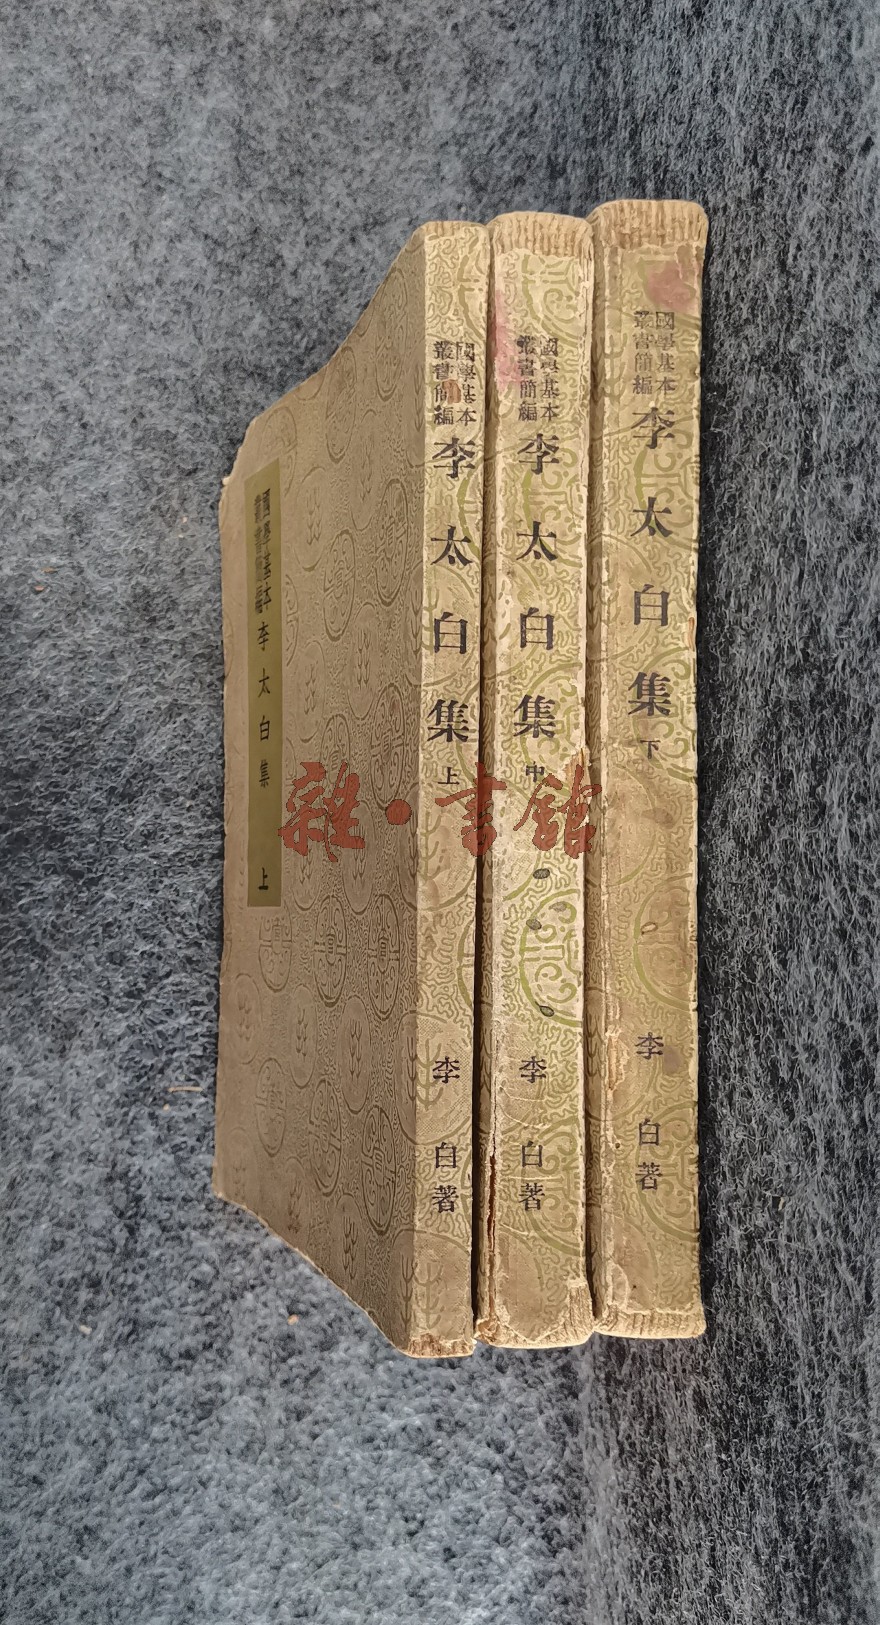 國學基本
叢書簡編
李太白集 上
國學基本
叢書簡編
李太白集 上
李白著
國學基本
叢書簡編
李太白集 中
李白著
國學基本
叢書簡編
李太白集 下
李白著
雜·書館